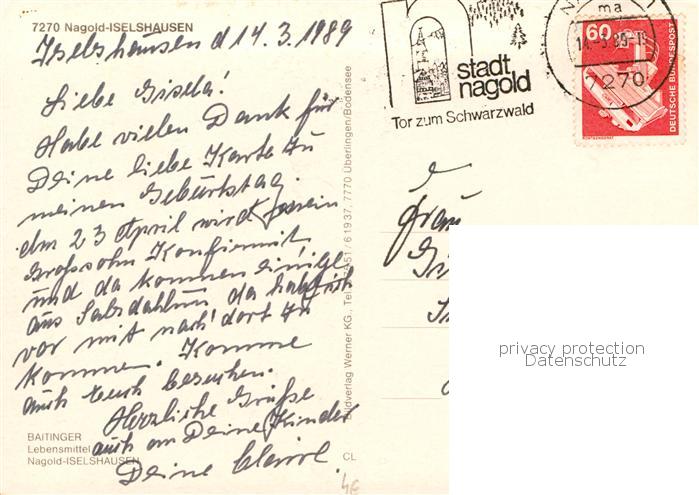 7270 Nagold-ISELSHAUSEN
Iselshausen d 14. 3. 1989
Liebe Gisela!
Habe vielen Dank für
Deine liebe Karte zu
meinen Geburtstag.
Am 23 April wird mein
Grosssohn Konfirmit
und da kommen einige
aus Salzdahlum da hab ich
vor mit nach dort zu
kommen. Komme
auch Euch besuchen.
Herzliche Grüße
auch an Deine Kinder
Deine
BAITINGER
Lebensmittel
Nagold-ISELSHAUSEN
CL
Bildverlag Werner KG., Tel. 07551/61937, 7770 Überlingen/Bodensee
stadt
nagold
Tor zum Schwarzwald
ma
14.-3.89
7270
60
DEUTSCHE BUNDESPOST
Frau
privacy protection
Datenschutz
4€